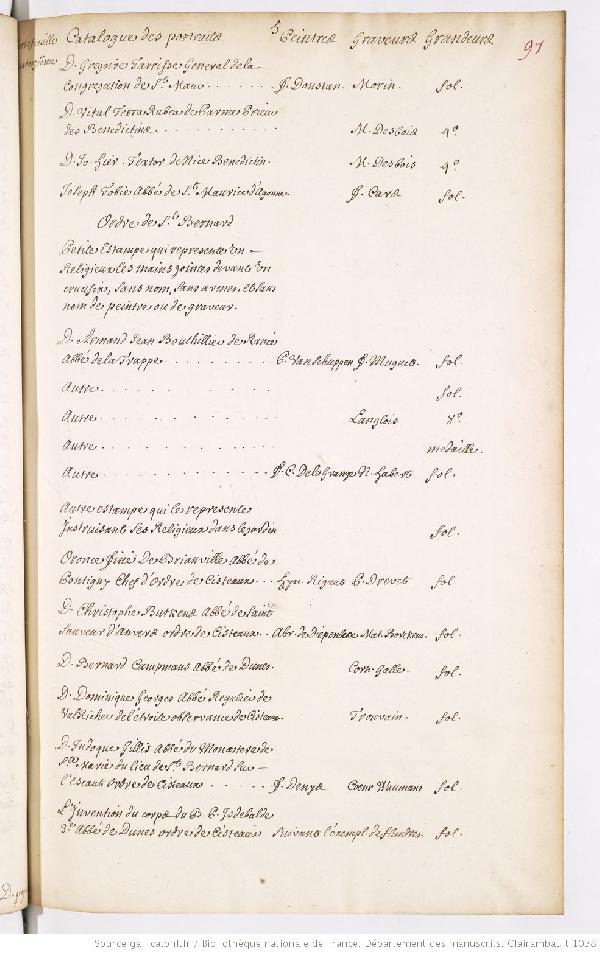 Catalogue des portraits Peintres Graveurs Grandeurs
91
D. Gregoire Tarrisse General de la
Congregation de St. Maur J. Doustan Morin. fol.
D. Vital Terra Rubea de Parme Prieur
des Benedictins M. Desbois 4º
D. Jo. Hier. Textor de Nice Benedictin. M. Desbois 4º
Joseph Tobie Abbé de St. Maurice d'Agaune. J. Cars fol.
Ordre de St. Bernard
Petite Estampe qui represente Un
Religieux les mains jointes devant Un
crucifix, sans nom, sans armes, et sans
nom de peintre ou de graveur.
D. Armand Jean Bouthillier de Rancé
Abbé de la Trappe C. Van Schuppen J. Muguet. fol.
Autre fol.
Autre Langlois 8º
Autre medaille.
Autre N. Habert fol.
Autre estampe qui le represente
Instruisant ses Religieux dans le jardin fol.
Oronce Finé De Brianville Abbé de
Pontigny Chef d'Ordre de Cisteaux Hya. Rigaut P. Drevet fol
D. Christophe Butkens Abbé de Saint
Sauveur d'Anvers ordre de Cisteaux Abr. de Diepenbeke Mat. Borrekens. fol.
D. Bernard Campmans Abbé de Dunes. Corn. Galle. fol.
D. Dominique Georges Abbé Regulier de
Valricher de l'étroite observance de Cisteaux. Trouvain. fol.
D. Judoque Gillis Abbé du Monastere de
Marie du lieu de St. Bernard sur
l'escaut Ordre de Cisteaux J. Denys Coenr. Waumans fol.
L'Invention du corps du B. P. Idesbalde
3e Abbé de Dunes ordre de Cisteaux Suivant l'exempl. de Flandres. fol.
D. greg
Source gallica.bnf.fr / Bibliothèque nationale de France. Département des manuscrits. Clairambault 1038